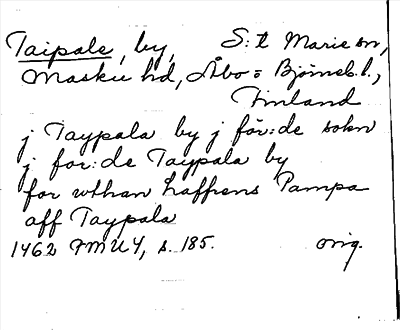 Taipale, by, S:t Marie sn,
Masku hd, Åbo = Björneb. l.,
Finland
j Taypala by j för:de sokn
j for:de Taypala by
for wthan haffrens Pampa
aff Taypala
1462 FMU 4, s. 185. orig.